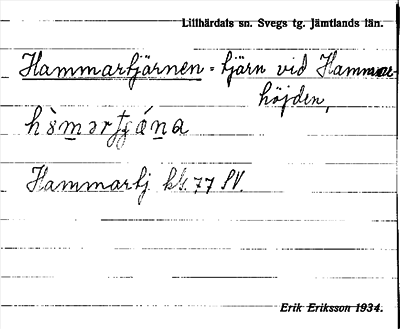 Lillhärdals sn. Svegs tg. Jämtlands län.
Hammartjärnen = tjärn vid Hammar-
höjden,
Hammartj. kbl. 77 SV.
Erik Eriksson 1934.